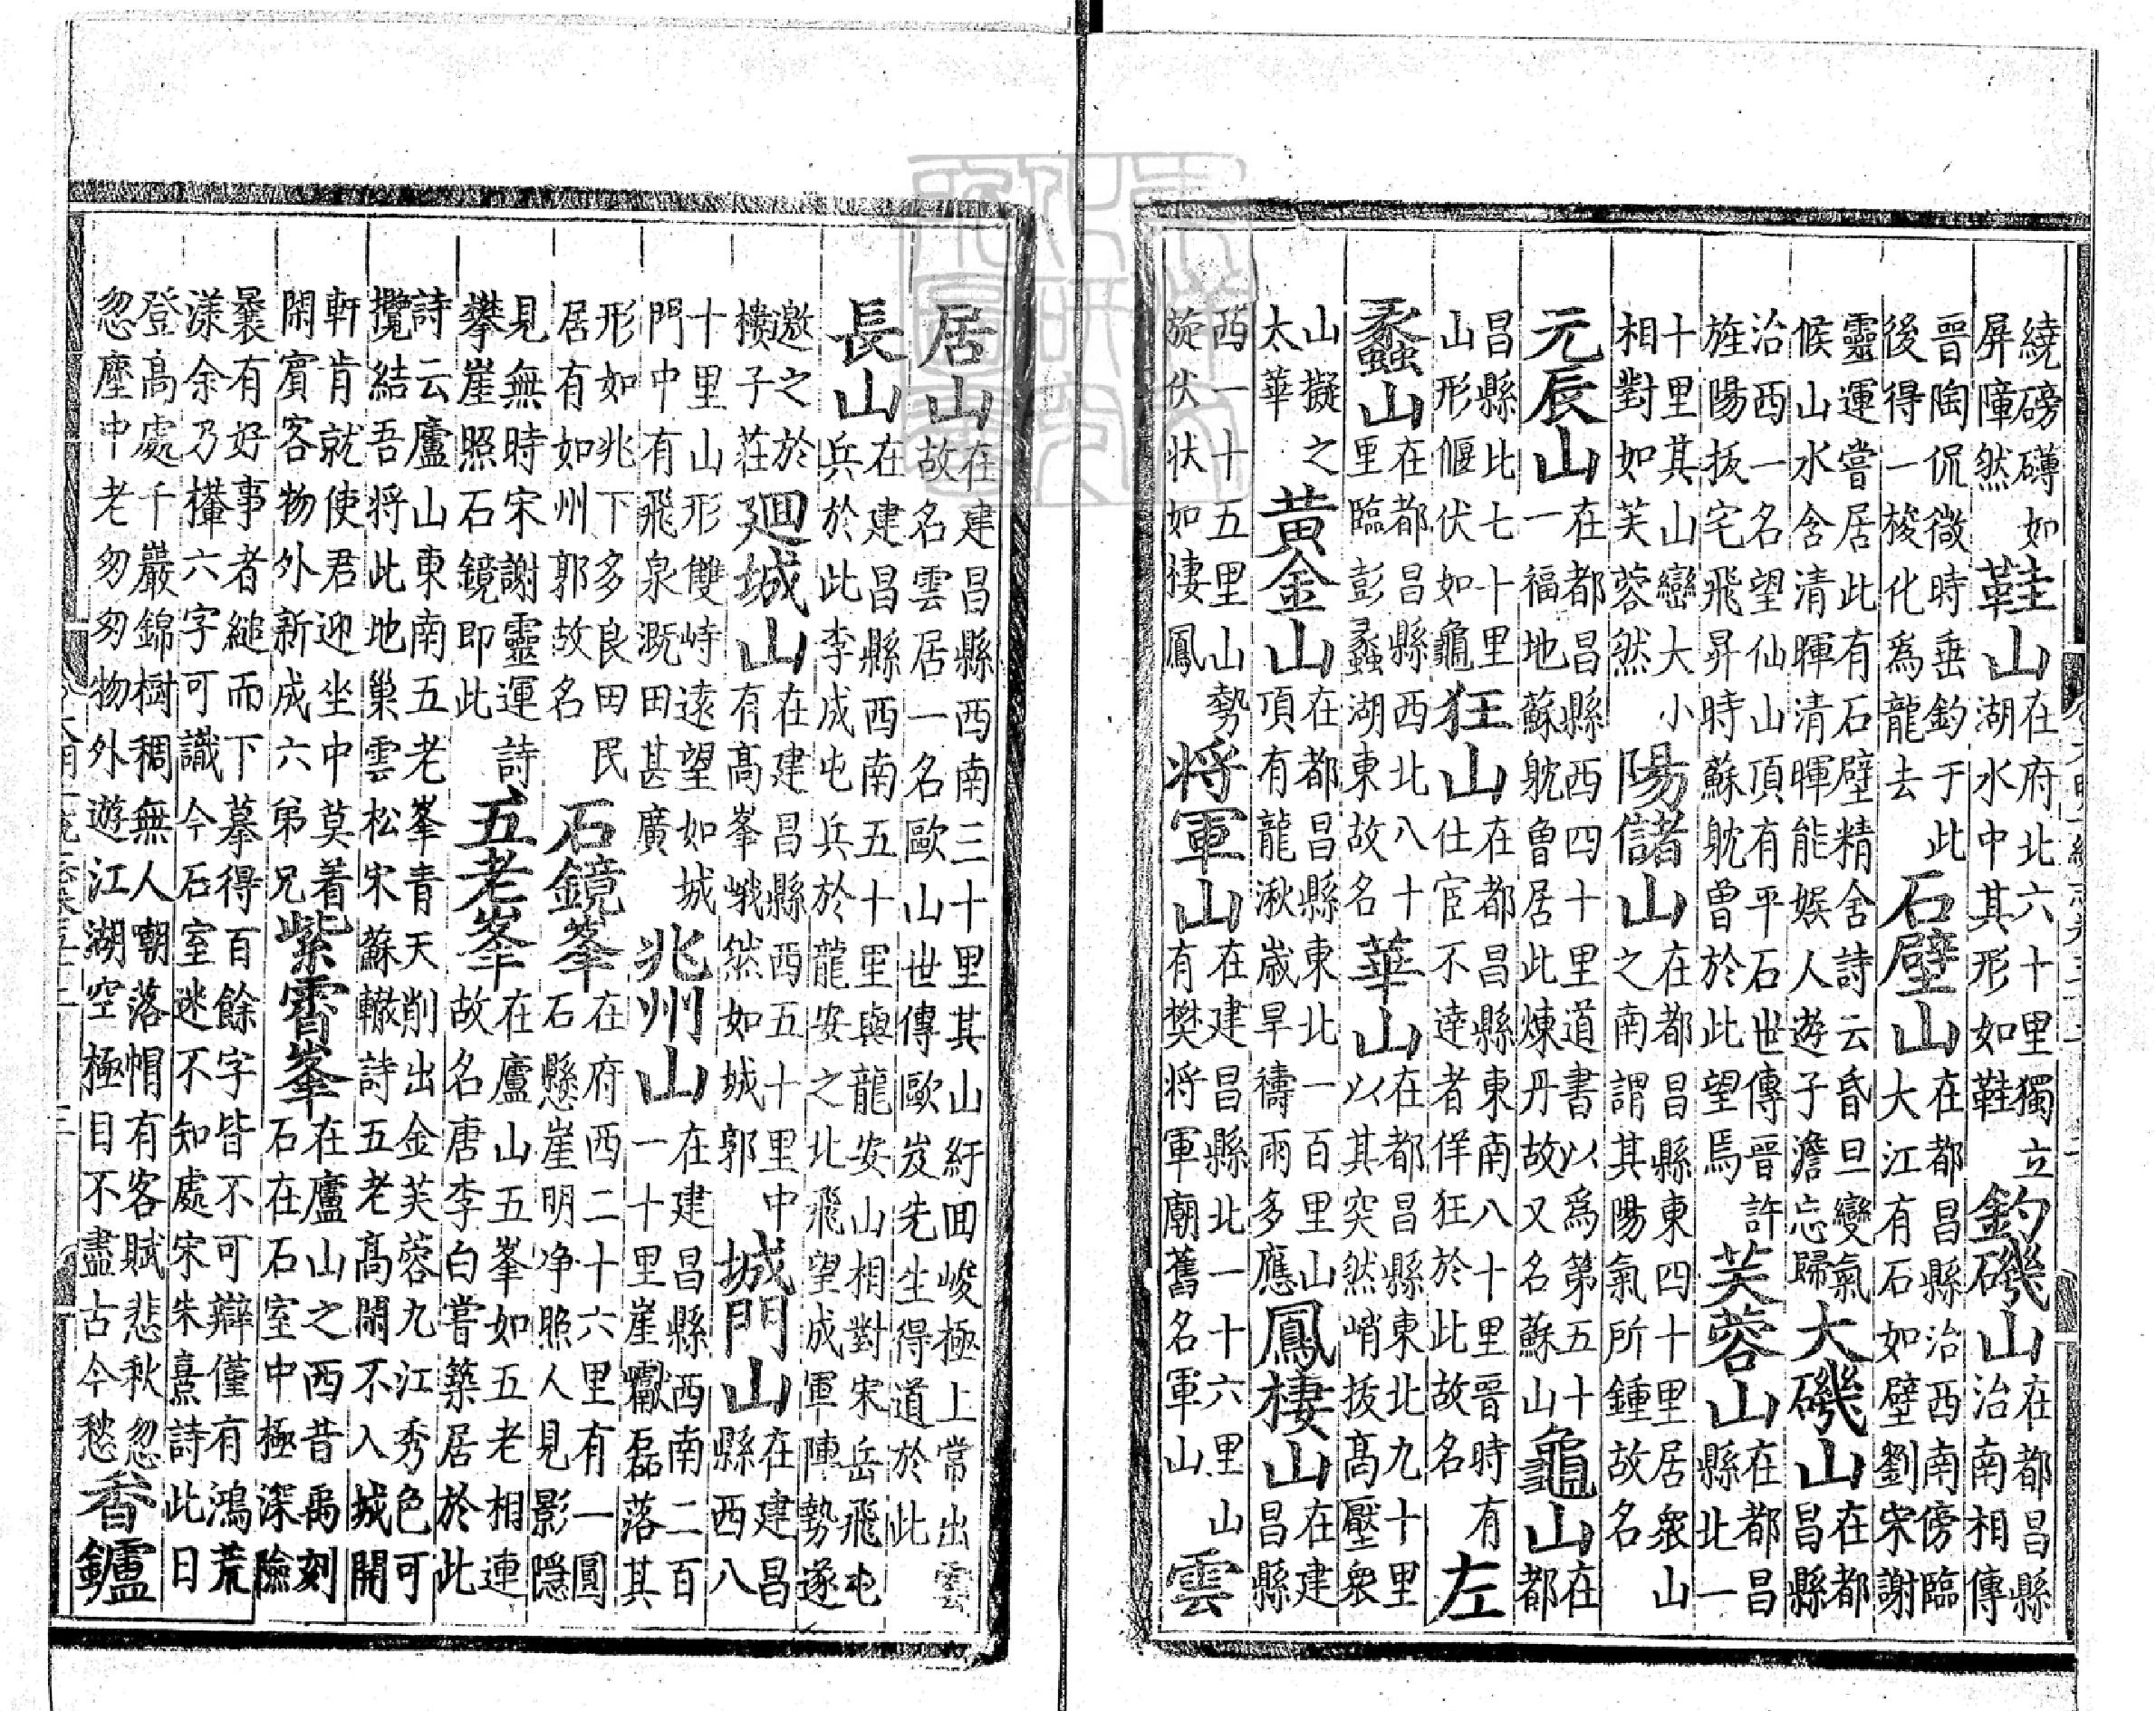 繞磅礴如屏障然鞋山在府北六十里獨立湖水中其形如鞋釣磯山在都昌縣治南相傳
晉陶侃微時垂釣于此後得一梭化爲龍去石壁山在都昌縣治西南傍臨大江有石如壁劉宋謝
靈運嘗居此有石壁精舍詩云昏旦變氣候山水含清暉清暉能娛人遊子澹忘歸大磯山在都昌縣
治西一名望仙山頂有平石世傳晉許旌陽拔宅飛昇時蘇躭曾於此望焉芙蓉山在都昌縣北一
十里其山巒大小相對如芙蓉然陽儲山在都昌縣東四十里居衆山之南謂其陽氣所鍾故名
元辰山在都昌縣西四十里道書以爲第五十一福地蘇躭魯居此煉丹故又名蘇山龜山在都
昌縣比七十里山形偃伏如龜狂山在都昌縣東南八十里晉時有仕宦不達者佯狂於此故名左
蠡山在都昌縣西北八十里臨彭蠡湖東故名華山在都昌縣東北九十里以其突然峭拔高壓衆
山擬之太華黃金山在都昌縣東北一百里山頂有龍湫歲旱禱雨多應鳳棲山在建昌縣
西一十五里山勢旋伏状如棲鳳将軍山在建昌縣北一十六里山有樊将軍廟舊名軍山雲
居山在建昌縣西南三十里其山紆囬峻極上常出雲故名雲居一名歐山世傳歐岌先生得道於此
長山在建昌縣西南五十里與龍安山相對宋岳飛屯兵於此李成屯兵於龍安之北飛望成軍陣勢遂
邀之於樓子莊廻城山在建昌縣西五十里中有高峯峨然如城郭城門山在建昌縣西八
十里山形雙峙遠望如城門中有飛泉溉田甚廣兆州山在建昌縣西南二百一十里崖巘磊落其
形如兆下多良田民居有如州郭故名石鏡峯在府西二十六里有一圓石懸崖明净照人見影隠
見無時宋謝靈運詩攀崖照石鏡即此五老峯在廬山五峯如五老相連故名唐李白嘗築居於此
詩云廬山東南五老峯青天削出金芙蓉九江秀色可攬結吾将此地巢雲松宋蘇轍詩五老高閑不入城開
軒肯就使君迎坐中莫着閑賓客物外新成六弟兄紫霄峯在廬山之西昔禹刻石在石室中極深險
曩有好事者縋而下摹得百餘字皆不可辯僅有鴻荒漾余乃㰏六字可識今石室迷不知處宋朱熹詩此日
登高處千巖錦樹稠無人嘲落帽有客賦悲秋忽忽塵中老匆匆物外遊江湖空極目不盡古今愁香鑪